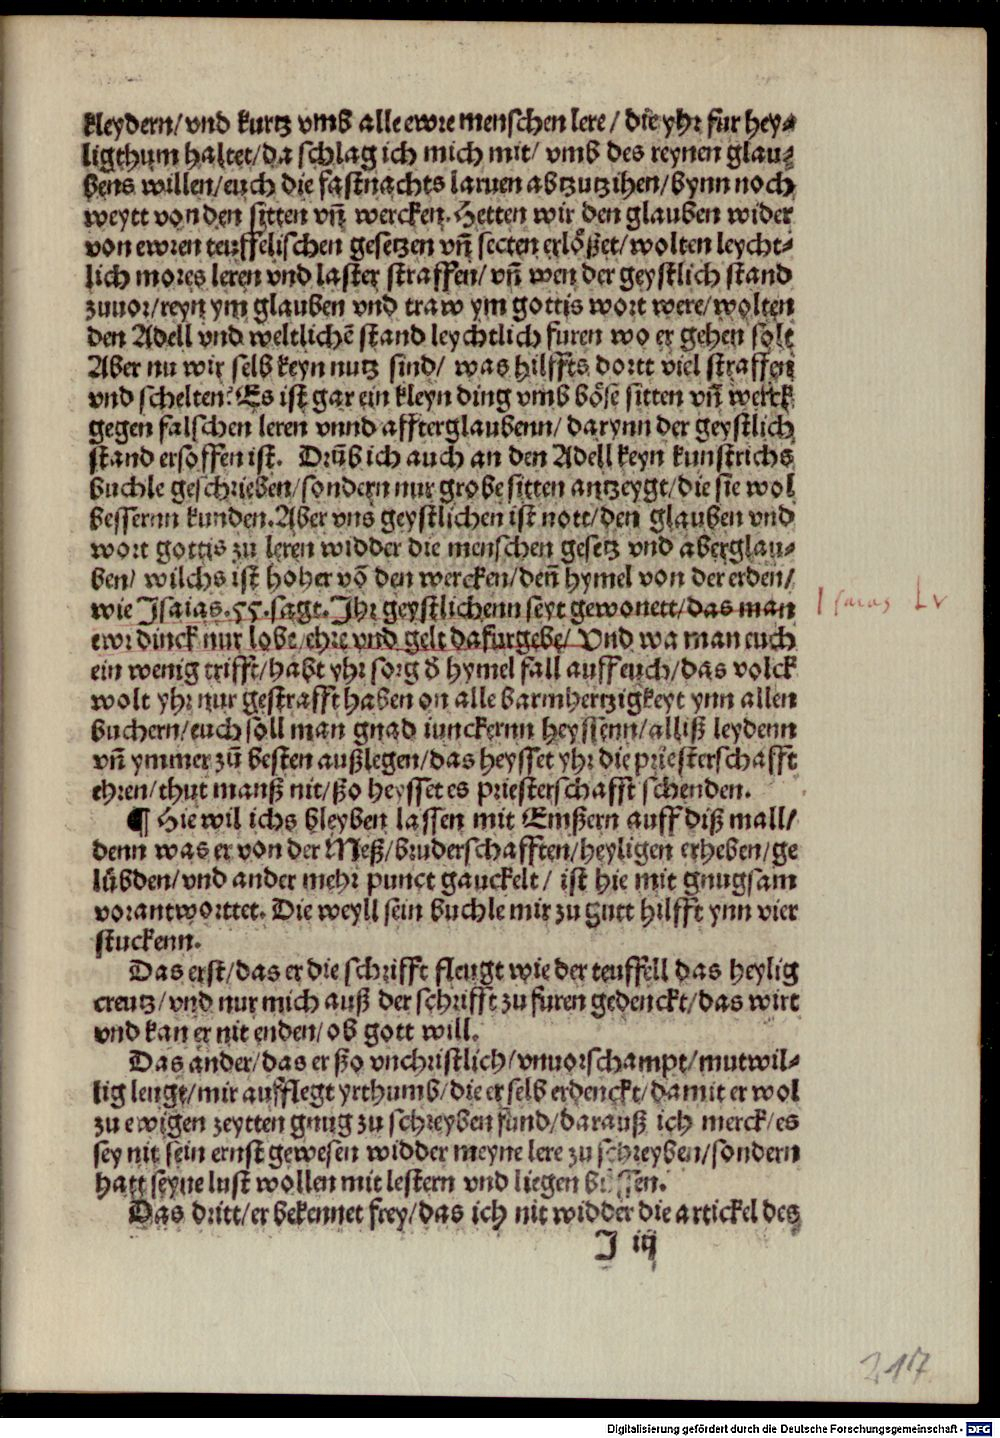 kleydern/ vnd kurtz vmb alle ewre menschen lere/ die yhr fur hey-
ligthum haltet/ da schlag ich mich mit/ vmb des reynen glau-
bens willen/ euch die fastnachts laruen abtzutzihen/ bynn noch
weytt von den sitten vñ wercken. Hetten wir den glauben wider
von ewren teuffelischen gesetzen vñ secten erlößet/ wolten leycht-
lich mores leren vnd laster straffen/ vñ wen der geystlich stand
zuuor/ reyn ym glauben vnd traw ym gottis wort were/ wolten
den Adell vnd weltlichē stand leychtlich furen wo er gehen solt
Aber nu wir selb keyn nutz sind/ was hilffts dortt viel straffen
vnd schelten? Es ist gar ein kleyn ding vmb böse sitten vñ werck
gegen falschen leren vnnd affterglaubenn/ darynn der geystlich
stand ersoffen ist. Drūb ich auch an den Adell keyn kunstrichs
buchle geschrieben/ sondern nur grobe sitten antzeygt/ die sie wol
bessernn kunden. Aber vns geystlichen ist nott/ den glauben vnd
wort gottis zu leren widder die menschen gesetz vnd aberglau-
ben/ wilchs ist hoher vō den wercken/ deñ hymel von der erden/
wie Isaias. 55. sagt. Ihr geystlichenn seyt gewonett/ das man
ewr dinck nur lobe/ ehre vnd gelt dafurgebe/ Vnd wa man euch
ein wenig trifft/ habt yhr sorg d̄ hymel fall auff euch/ das volck
wolt yhr nur gestrafft haben on alle barmhertzigkeyt ynn allen
buchern/ euch soll man gnad iunckernn heyssenn/ alliß leydenn
vñ ymmer zū besten außlegen/ das heysset yhr die priesterschafft
ehren/ thut manß nit/ ßo heysset es priesterschafft schenden.
¶ Hie wil ichs bleyben lassen mit Emßern auff diß mall/
denn was er von der Meß/ bruderschafften/ heyligen erheben/ ge
lübden/ vnd ander mehr punct gauckelt/ ist hie mit gnugsam
vorantworttet. Die weyll sein buchle mir zu gutt hilfft ynn vier
stuckenn.
Das erst/ das er die schrifft fleugt wie der teuffell das heylig
creutz/ vnd nur mich auß der schrifft zu furen gedenckt/ das wirt
vnd kan er nit enden/ ob gott will.
Das ander/ das er ßo vnchristlich/ vnuorschampt/ mutwil-
lig leugt/ mir aufflegt yrthumb/ die er selb erdenckt/ damit er wol
zu ewigen zeytten gnug zu schreyben fund/ darauß ich merck/ es
sey nit sein ernst gewesen widder meyne lere zu schreyben/ sondern
hatt seyne lust wollen mit lestern vnd liegen büssen.
Das dritt/ er bekennet frey/ das ich nit widder die artickel des
J iij
Isaias Lv
217
Digitalisierung gefördert durch die Deutsche Forschungsgemeinschaft - DFG